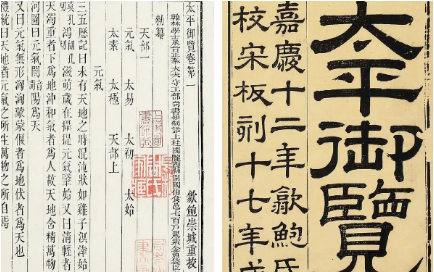 太平御覽卷第一 歙鮑崇城重校
翰林學士承旨正奉大夫守工部尚書知制誥上柱國隴西縣開國伯食邑七百戶賜紫金魚袋臣
敕纂
天部一
元氣 太易 太初 太始
太素 太極 天部上
元氣
三五歷記曰未有天地之時混沌狀如雞子溟涬始
滋萌歲在攝提元氣肇始又曰清輕者
天濁重者下為地沖和氣者為人故天地含精萬物
河圖曰元氣闓陽為天
又曰元氣無形洶洶濛濛偃者為地伏者為天也
禮統曰天地者元氣之所生萬物之所自焉
太平御覽
嘉慶十二年歙鮑氏
校宋板刻十七年成